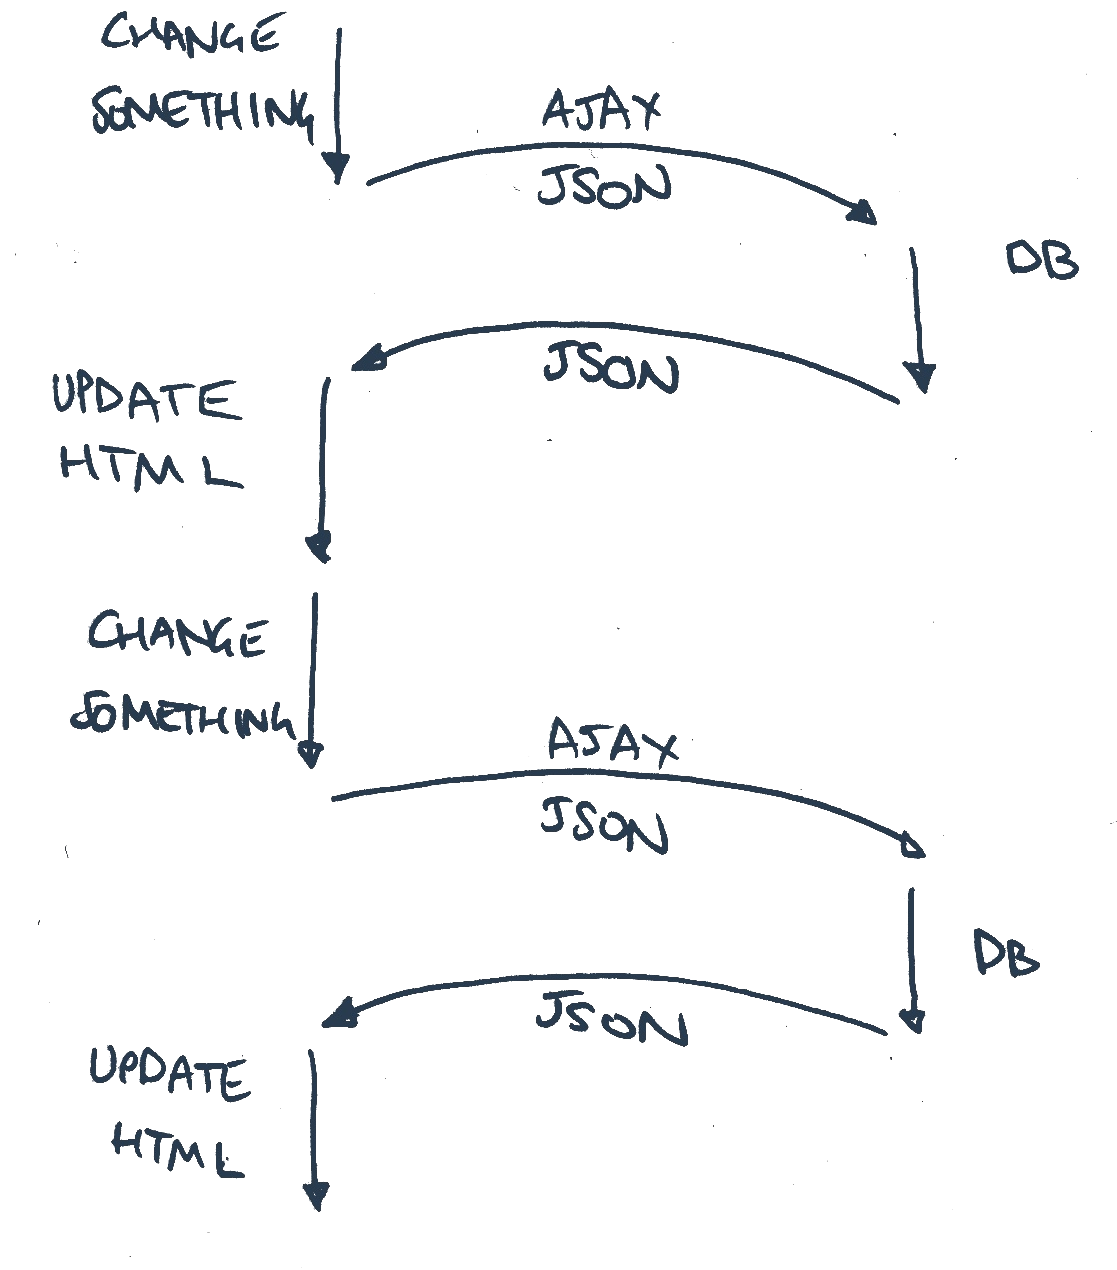 CHANGE
SOMETHING
AJAX
JSON
DB
JSON
UPDATE
HTML
CHANGE
SOMETHING
AJAX
JSON
DB
JSON
UPDATE
HTML